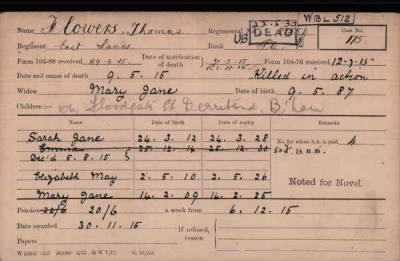 WBL 512
23.5.33
Name Flowers, Thomas Regimental No. Case No.
UB DEAD 115
Regiment East Lancs. Rank Pte.
Form 104-88 received 29.6.15 Date of notification of death Form 104-76 received 12.7.15
Date and cause of death 9.5.15 Killed in action
Widow Mary Jane Date of birth 9.5.87
Children:— Floodgate St Derritend, B'ham
Name Date of birth Date of expiry Remarks
Sarah Jane 24.3.12 24.3.28 No. for whom S.A. paid 4
Emma 25.12.14 25.12.30
Dec'd 5.8.15
Elizabeth May 2.5.10 2.5.26
Mary Jane 14.2.09 14.2.25 Noted for Novel.
Pension 22/6 20/6 a week from 6.12.15
Date awarded 30.11.15 If refused, reason
Papers